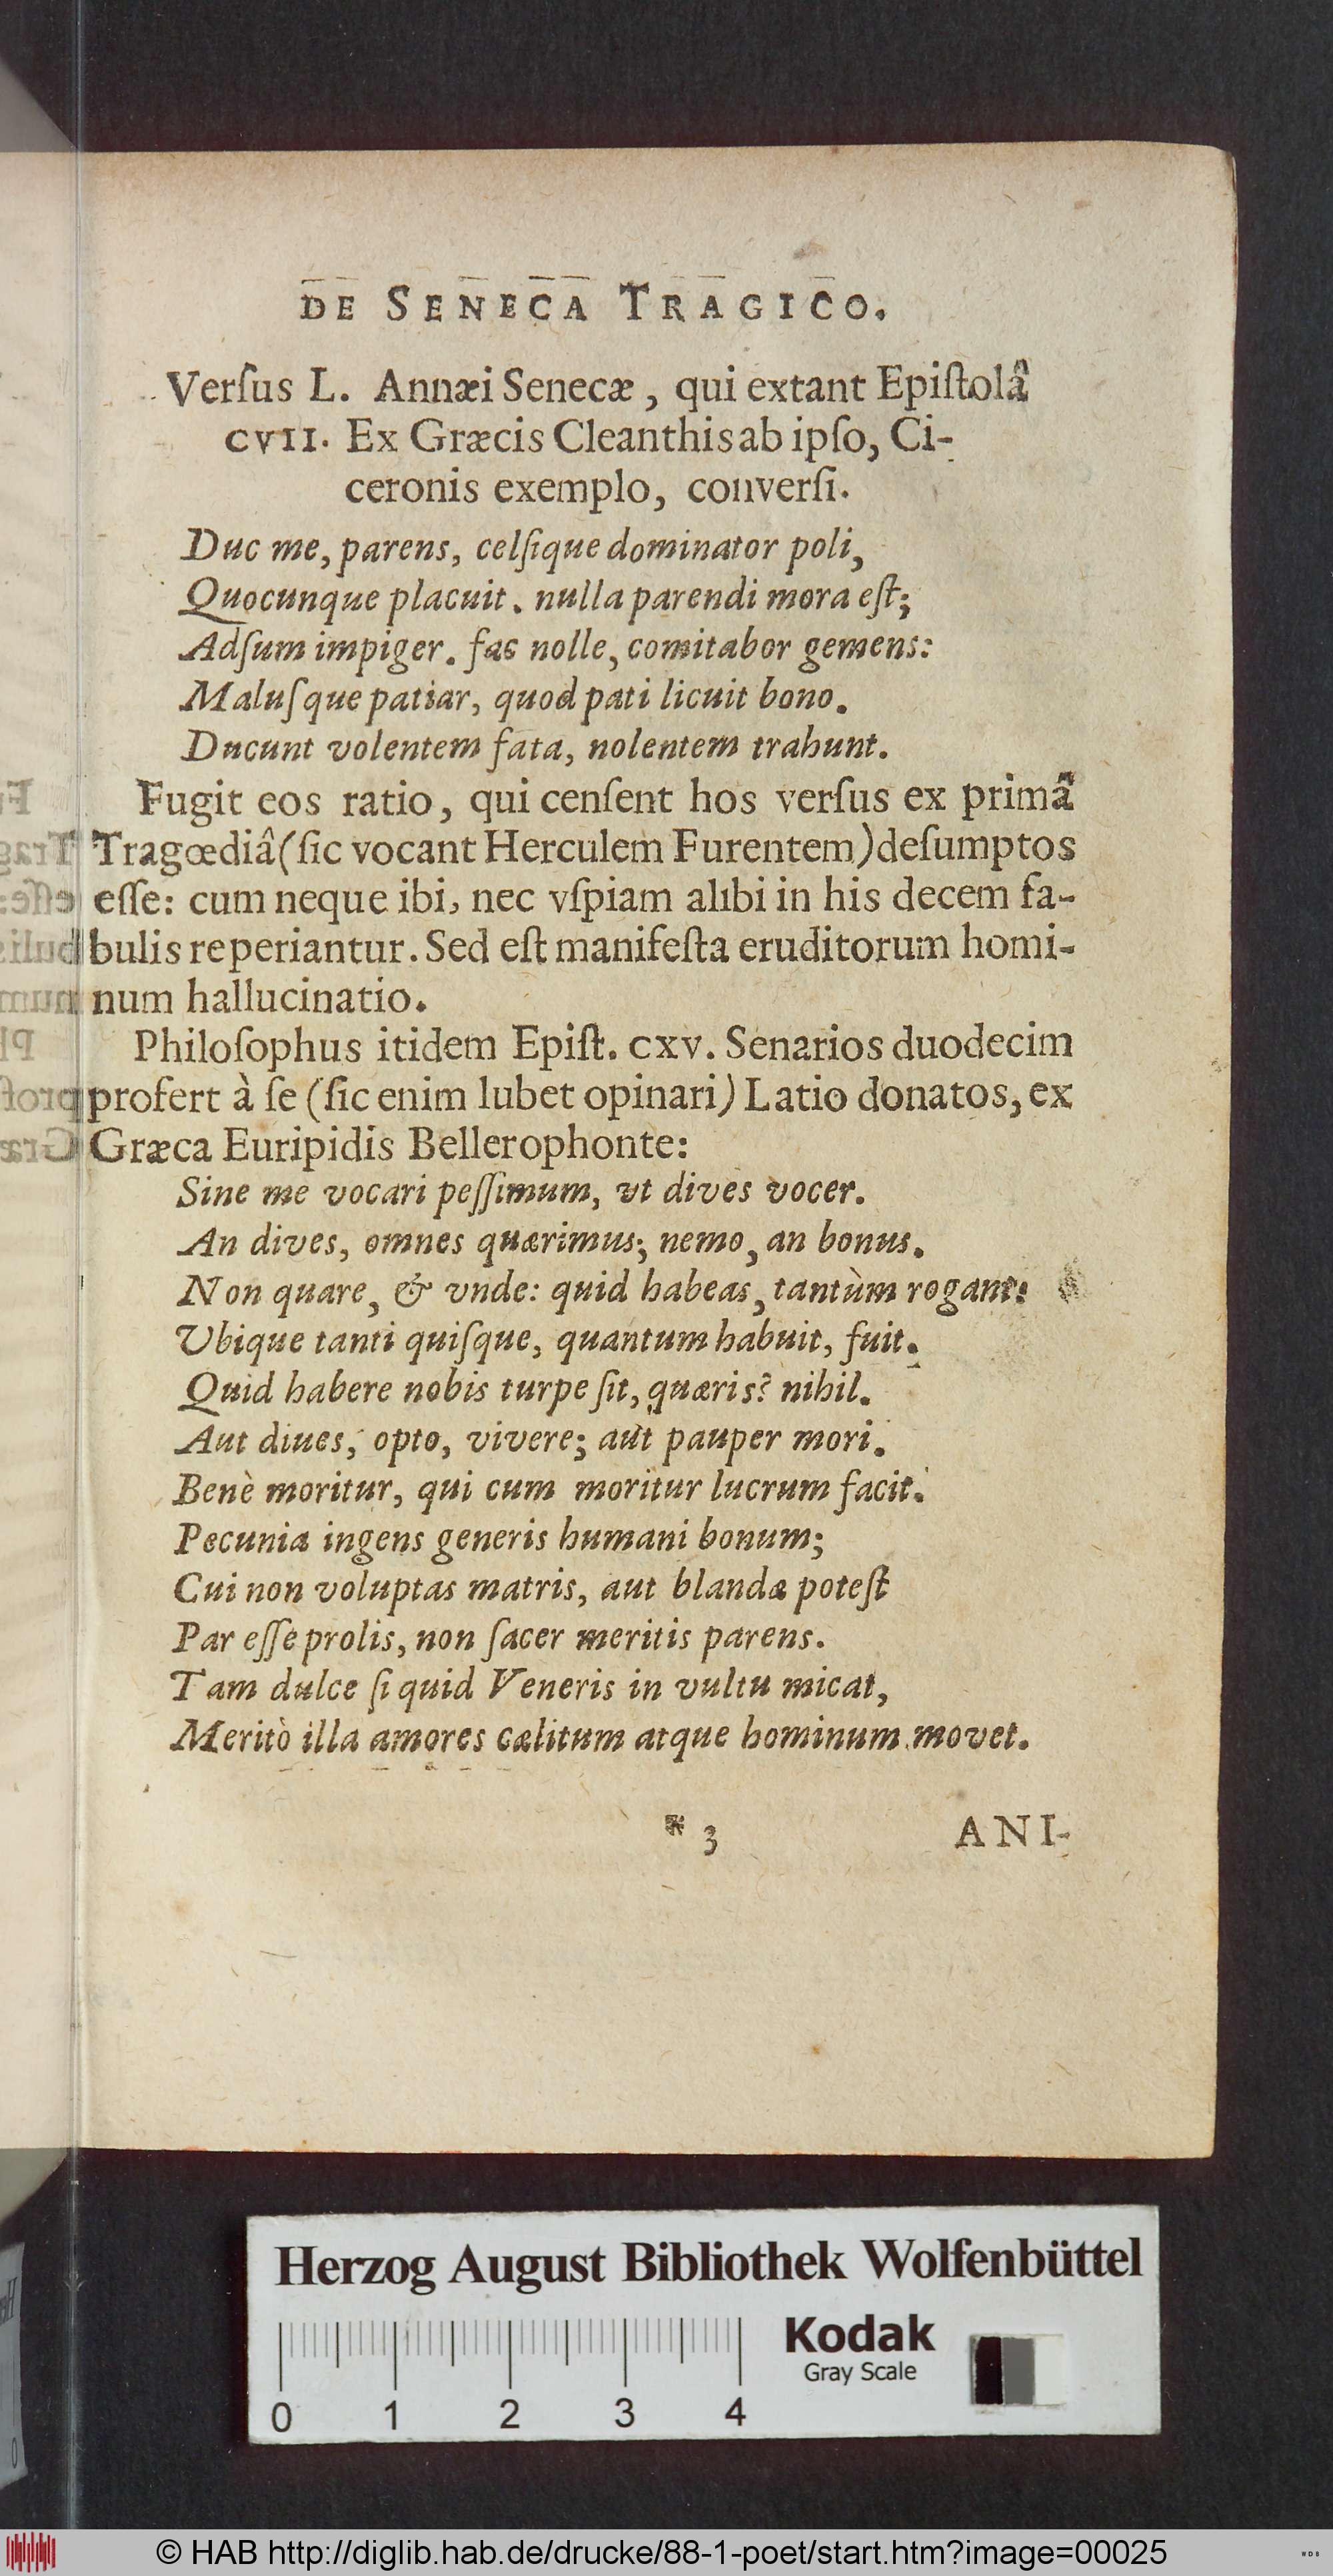 DE SENECA TRAGICO.
Verſus L. Annæi Senecæ, qui extant Epiſtolâ
CVII. Ex Græcis Cleanthis ab ipſo, Ci-
ceronis exemplo, converſi.
Duc me, parens, celſique dominator poli,
Quocunque placuit. nulla parendi mora eſt;
Adſum impiger. fac nolle, comitabor gemens:
Maluſque patiar, quod pati licuit bono.
Ducunt volentem fata, nolentem trahunt.
Fugit eos ratio, qui cenſent hos verſus ex primâ
Tragœdiâ (ſic vocant Herculem Furentem) deſumptos
eſſe: cum neque ibi, nec vſpiam alibi in his decem fa-
bulis reperiantur. Sed eſt manifeſta eruditorum homi-
num hallucinatio.
Philoſophus itidem Epiſt. CXV. Senarios duodecim
profert à ſe (ſic enim lubet opinari) Latio donatos, ex
Græca Euripidis Bellerophonte:
Sine me vocari peſſimum, vt dives vocer.
An dives, omnes quærimus; nemo, an bonus.
Non quare, & vnde: quid habeas, tantùm rogant:
Ubique tanti quiſque, quantum habuit, fuit.
Quid habere nobis turpe ſit, quæris? nihil.
Aut diues, opto, vivere; aut pauper mori.
Benè moritur, qui cum moritur lucrum facit.
Pecunia ingens generis humani bonum;
Cui non voluptas matris, aut blandæ poteſt
Par eſſe prolis, non ſacer meritis parens.
Tam dulce ſi quid Veneris in vultu micat,
Meritò illa amores cælitum atque hominum movet.
* 3 ANI-
Herzog August Bibliothek Wolfenbüttel
Kodak
Gray Scale
0 1 2 3 4
© HAB http://diglib.hab.de/drucke/88-1-poet/start.htm?image=00025